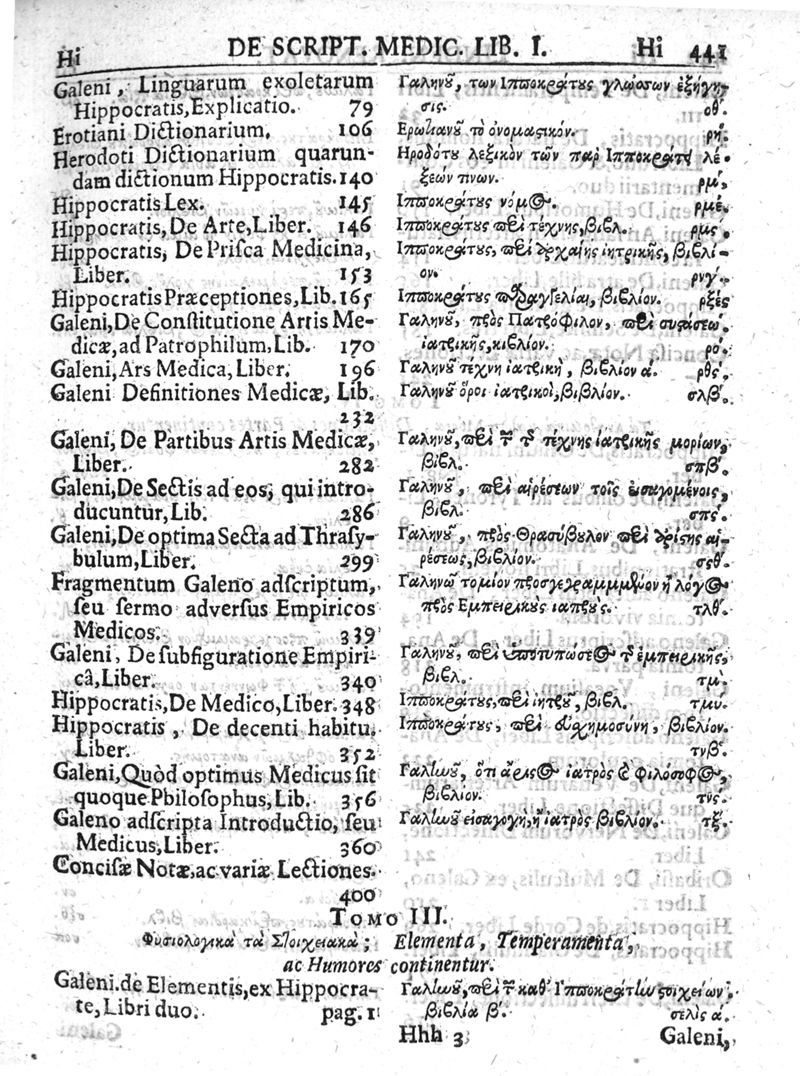 Hi DE SCRIPT. MEDIC. LIB. I. Hi 441
Galeni, Linguarum exoletarum
Hippocratis, Explicatio. 79
Erotiani Dictionarium. 106
Herodoti Dictionarium quarun-
dam dictionum Hippocratis. 140
Hippocratis Lex. 145
Hippocratis, De Arte, Liber. 146
Hippocratis, De Prisca Medicina,
Liber. 153
Hippocratis Præceptiones, Lib. 165
Galeni, De Constitutione Artis Me-
dicæ, ad Patrophilum, Lib. 170
Galeni, Ars Medica, Liber. 196
Galeni Definitiones Medicæ, Lib.
232
Galeni, De Partibus Artis Medicæ,
Liber. 282
Galeni, De Sectis ad eos, qui intro-
ducuntur, Lib. 286
Galeni, De optima Secta ad Thrasy-
bulum, Liber. 299
Fragmentum Galeno adscriptum,
seu sermo adversus Empiricos
Medicos. 339
Galeni, De subfiguratione Empiri-
câ, Liber. 340
Hippocratis, De Medico, Liber. 348
Hippocratis, De decenti habitu,
Liber. 352
Galeni, Quòd optimus Medicus sit
quoque Philosophus, Lib. 356
Galeno adscripta Introductio, seu
Medicus, Liber. 360
Concisæ Notæ, ac variæ Lectiones.
400
Γαληνοῦ, των Ιπποκράτους γλωσσων ἐξήγη-
σις. οθ´.
Ερωτιανοῦ τὸ ὀνομαστικόν. ρς´.
Ηροδότου λεξικὸν τῶν παρ Ιπποκράτη λέ-
ξεών τινων. ρμ´.
Ιπποκράτους νόμος. ρμέ.
Ιπποκράτους περὶ τέχνης, βιβλ. ρμς.
Ιπποκράτους, περὶ ἀρχαίης ἰητρικῆς, βιβλί-
ον. ρνγ´.
Ιπποκράτους παραγγελίαι, βιβλίον. ρξές
Γαληνοῦ, πρὸς Πατρόφιλον, περὶ συστάσεως
ἰατρικῆς, κιβλίον. ρο´.
Γαληνοῦ τέχνη ἰατρικὴ, βιβλίον ά. ρθς´.
Γαληνοῦ ὅροι ἰατρικοὶ, βιβλίον. σλβ´.
Γαληνοῦ, περὶ τῶν τῆς τέχνης ἰατρικῆς μορίων,
βιβλ. σπβ´.
Γαληνοῦ, περὶ αἱρέσεων τοῖς εἰσαγομένοις,
βιβλ. σπς´.
Γαληνοῦ, πρὸς Θρασύβουλον περὶ ἀρίστης αἱ-
ρέσεως, βιβλίον. σςθ´.
Γαληνοῦ τομίον προσγεγραμμένον ἢ λόγος
πρὸς Εμπειρικοὺς ἰατρούς. τλθ´.
Γαληνοῦ, περὶ ὑποτυπώσεως τῆς ἐμπειρικῆς,
βιβλ. τμ.
Ιπποκράτους, περὶ ἰητροῦ, βιβλ. τμυ.
Ιπποκράτους, περὶ εὐσχημοσύνη, βιβλίον.
τνβ´.
Γαληνοῦ, ὅτι ἄριστος ἰατρὸς καὶ φιλόσοφος,
βιβλίον. τνς´.
Γαληνοῦ εἰσαγωγὴ, ἢ ἰατρὸς βιβλίον. τξ´.
TOMO III.
Φυσιολογικὰ τὰ Στοιχειακά; Elementa, Temperamenta,
ac Humores continentur.
Galeni. de Elementis, ex Hippocra-
te, Libri duo. pag. 1
Γαληνοῦ, περὶ τῶν καθ᾽ Ιπποκράτην στοιχείων,
βιβλία β´. σελὶς ά.
Hhh 3 Galeni,